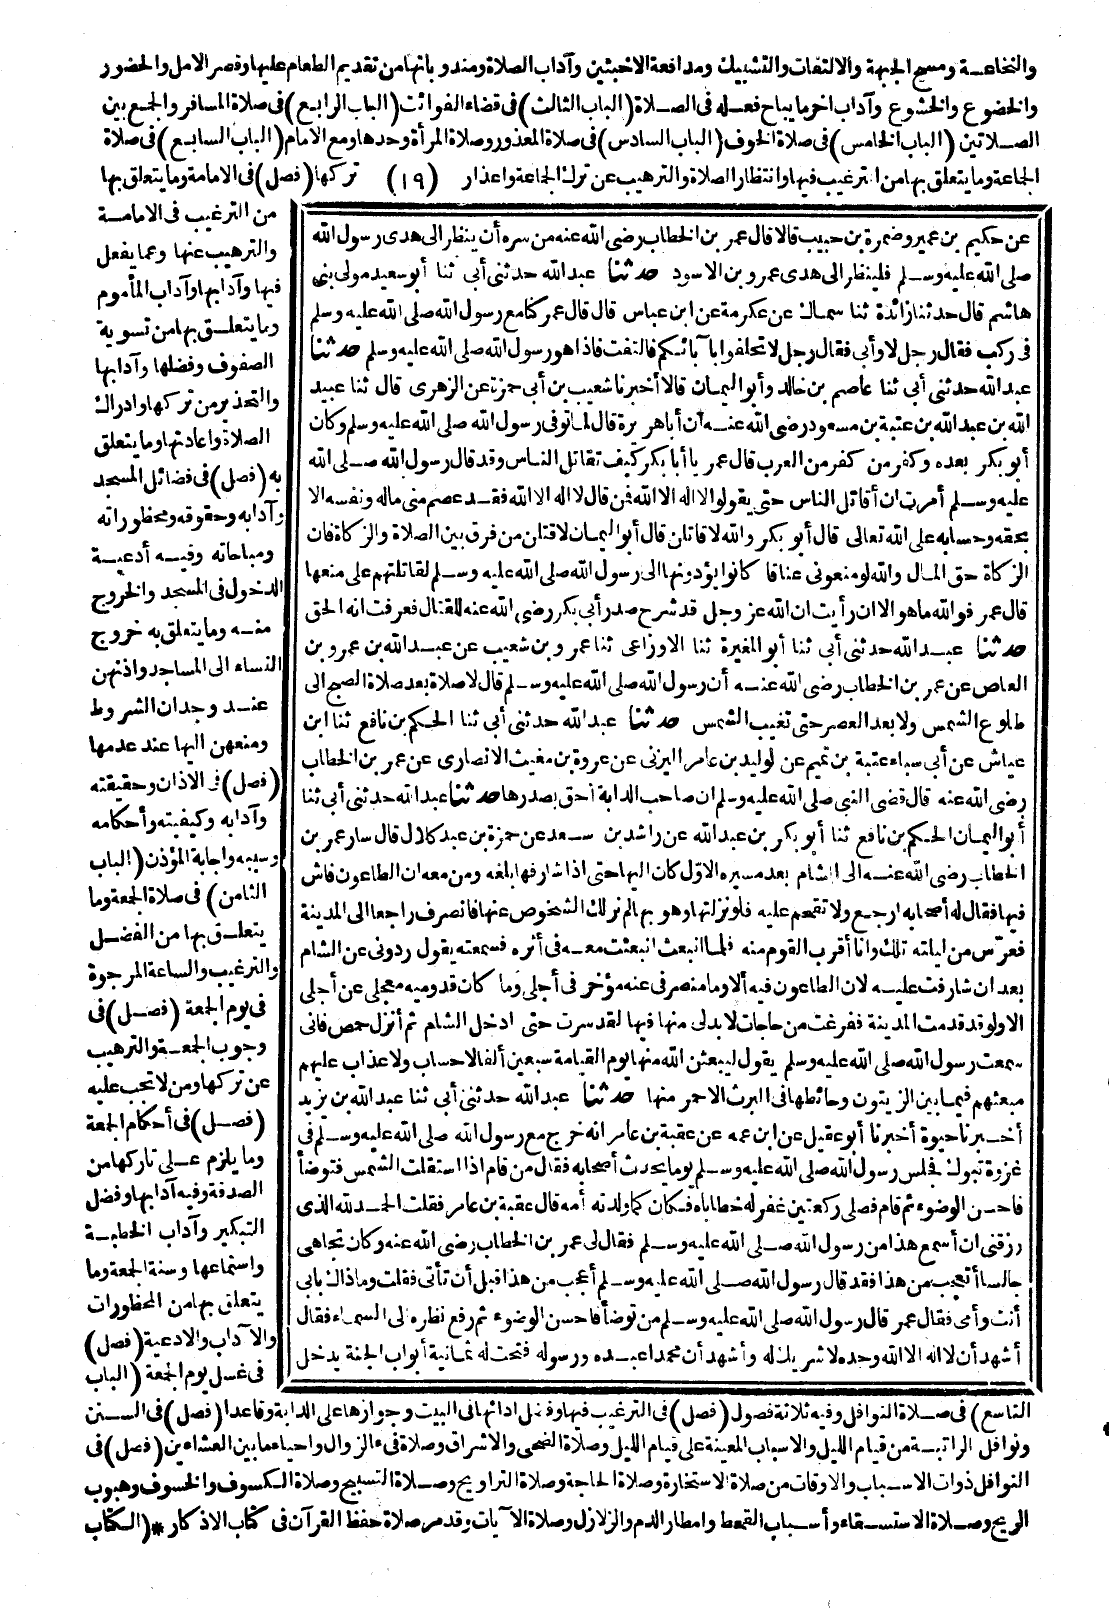 والنخاعة ومسح الجبهة والالتفات والتشبيك ومدافعة الاخبثين وآداب الصلاة ومندوباتها من تقديم الطعام عليها وقصر الامل والحضور
والخضوع والخشوع وآداب اخر وما يباح فعله فى الصلاة (الباب الثالث) فى قضاء الفوائت (الباب الرابع) فى صلاة المسافر والجمع بين
الصلاتين (الباب الخامس) فى صلاة الخوف (الباب السادس) فى صلاة المعذور وصلاة المرأة وحدها ومع الامام (الباب السابع) فى صلاة
الجماعة وما يتعلق بها من الترغيب فيها وانتظار الصلاة والترهيب عن ترك الجماعة واعذار (١٩) تركها (فصل) فى الامامة وما يتعلق بها
من الترغيب فى الامامة
والترهيب عنها وعما يفعل
فيها وآدابها وآداب المأموم
وما يتعلق بها من تسوية
الصفوف وفضلها وآدابها
والتحذير من تركها وادراك
الصلاة واعادتها وما يتعلق
به (فصل) فى فضائل المسجد
وآدابه وحقوقه ومحظوراته
ومباحاته وفيه أدعية
الدخول فى المسجد والخروج
منه وما يتعلق به خروج
النساء الى المساجد واذنهن
عند وجدان الشروط
ومنعهن اليها عند عدمها
(فصل) فى الاذان وحقيقته
وآدابه وكيفيته وأحكامه
وسببه واجابة المؤذن (الباب
الثامن) فى صلاة الجمعة وما
يتعلق بها من الفضل
والترغيب والساعة المرجوة
فى يوم الجمعة (فصل) فى
وجوب الجمعة والترهيب
عن تركها ومن لا تجب عليه
(فصل) فى أحكام الجمعة
وما يلزم على تاركها من
الصدقة وفيه آدابها وفضل
التبكير وآداب الخطبة
واستماعها وسنة الجمعة وما
يتعلق بها من المحظورات
والآداب والادعية (فصل)
فى غسل يوم الجمعة (الباب
عن حكيم بن عمير وضمرة بن حبيب قالا قال عمر بن الخطاب رضى الله عنه من سره أن ينظر الى هدى رسول الله
صلى الله عليه وسلم فلينظر الى هدى عمرو بن الاسود حدثنا عبد الله حدثنى أبى ثنا أبو سعيد مولى بنى
هاشم قال حدثنا زائدة ثنا سماك عن عكرمة عن ابن عباس قال قال عمر كنا مع رسول الله صلى الله عليه وسلم
فى ركب فقال رجل لا وأبى فقال رجل لا تحلفوا بآبائكم فالتفت فاذا هو رسول الله صلى الله عليه وسلم حدثنا
عبد الله حدثنى أبى ثنا عاصم بن خالد وأبو اليمان قالا أخبرنا شعيب بن أبى حمزة عن الزهرى قال ثنا عبيد
الله بن عبد الله بن عتبة بن مسعود رضى الله عنه ان أبا هريرة قال لما توفى رسول الله صلى الله عليه وسلم وكان
أبو بكر بعده وكفر من كفر من العرب قال عمر يا أبا بكر كيف تقاتل الناس وقد قال رسول الله صلى الله
عليه وسلم أمرت ان أقاتل الناس حتى يقولوا لا اله الا الله فمن قال لا اله الا الله فقد عصم منى ماله ونفسه الا
بحقه وحسابه على الله تعالى قال أبو بكر والله لاقاتلن قال أبو اليمان لاقتلن من فرق بين الصلاة والزكاة فان
الزكاة حق المال والله لو منعونى عناقا كانوا يؤدونها الى رسول الله صلى الله عليه وسلم لقاتلتهم على منعها
قال عمر فوالله ما هو الا ان رأيت ان الله عز وجل قد شرح صدر أبى بكر رضى الله عنه للقتال فعرفت انه الحق
حدثنا عبد الله حدثنى أبى ثنا أبو المغيرة ثنا الاوزاعى ثنا عمرو بن شعيب عن عبد الله بن عمرو بن
العاص عن عمر بن الخطاب رضى الله عنه أن رسول الله صلى الله عليه وسلم قال لا صلاة بعد صلاة الصبح الى
طلوع الشمس ولا بعد العصر حتى تغيب الشمس حدثنا عبد الله حدثنى أبى ثنا الحكم بن نافع ثنا ابن
عياش عن أبى سباء عتبة بن تميم عن لوليد بن عامر اليزنى عن عروة بن مغيث الانصارى عن عمر بن الخطاب
رضى الله عنه قال قضى النبى صلى الله عليه وسلم ان صاحب الدابة أحق بصدرها حدثنا عبد الله حدثنى أبى ثنا
أبو اليمان الحكم بن نافع ثنا أبو بكر بن عبد الله عن راشد بن سعد عن حمزة بن عبد كلال قال سار عمر بن
الخطاب رضى الله عنه الى الشام بعد مسيره الاول كان اليها حتى اذا شارفها بلغه ومن معه ان الطاعون فاش
فيها فقال له أصحابه ارجع ولا تقحم عليه فلو نزلتها وهو بها لم نر لك الشخوص عنها فانصرف راجعا الى المدينة
فعرس من ليلته تلك وانا أقرب القوم منه فلما انبعث انبعثت معه فى أثره فسمعته يقول ردونى عن الشام
بعد ان شارفت عليه لان الطاعون فيه ألا وما منصرفى عنه مؤخر فى أجلى وما كان قدوميه معجلى عن أجلى
الا ولو قد قدمت المدينة ففرغت من حاجات لا بد لى منها فيها لقد سرت حتى ادخل الشام ثم أنزل حمص فانى
سمعت رسول الله صلى الله عليه وسلم يقول ليبعثن الله منها يوم القيامة سبعين ألفا لا حساب ولا عذاب عليهم
مبعثهم فيما بين الزيتون وحائطها فى البرث الاحمر منها حدثنا عبد الله حدثنى أبى ثنا عبد الله بن يزيد
أخبرنا حيوة أخبرنا أبو عقيل عن ابن عمه عن عقبة بن عامر انه خرج مع رسول الله صلى الله عليه وسلم فى
غزوة تبوك فجلس رسول الله صلى الله عليه وسلم يوما يحدث أصحابه فقال من قام اذا استقلت الشمس فتوضأ
فاحسن الوضوء ثم قام فصلى ركعتين غفر له خطاياه فكان كما ولدته أمه قال عقبة بن عامر فقلت الحمد لله الذى
رزقنى ان أسمع هذا من رسول الله صلى الله عليه وسلم فقال لى عمر بن الخطاب رضى الله عنه وكان تجاهى
جالسا أتعجب من هذا فقد قال رسول الله صلى الله عليه وسلم أعجب من هذا قبل أن تأتى فقلت وما ذاك بابى
أنت وأمى فقال عمر قال رسول الله صلى الله عليه وسلم من توضأ فاحسن الوضوء ثم رفع نظره الى السماء فقال
أشهد أن لا اله الا الله وحده لا شريك له وأشهد أن محمدا عبده ورسوله فتحت له ثمانية أبواب الجنة يدخل
التاسع) فى صلاة النوافل وفيه ثلاثة فصول (فصل) فى الترغيب فيها وفضل ادائها فى البيت وجوازها على الدابة وقاعدا (فصل) فى السنن
ونوافل الراتبة من قيام الليل والاسباب المعينة على قيام الليل وصلاة الضحى والاشراق وصلاة فىء الزوال واحياء ما بين العشاءين (فصل) فى
النوافل ذوات الاسباب والاوقات من صلاة الاستخارة وصلاة الحاجة وصلاة التراويح وصلاة التسبيح وصلاة الكسوف والخسوف وهبوب
الريح وصلاة الاستسقاء وأسباب القحط وامطار الدم والزلازل وصلاة الآيات وقد مر صلاة حفظ القرآن فى كتاب الاذكار *(الكتاب